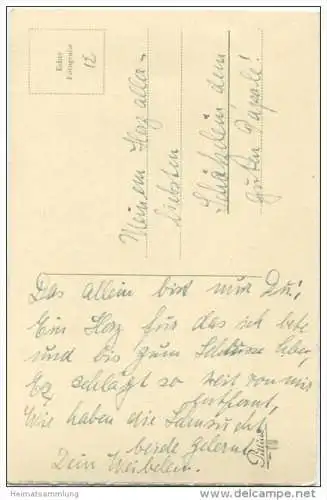 Echte
Fotografie
12
Meinem Herz aller-
liebsten
Schätzelein dem
guten Papale!
Das allein bist nur Du!
Ein Herz für das ich lebe
und bis zum Schlusse leber,
Es schlägt so weit von mir
entfernt,
Wie haben die Sehnsucht
beide gelernt.
Dein Weibelein.
Heimatsammlung
www.ansichtskartenversand.com